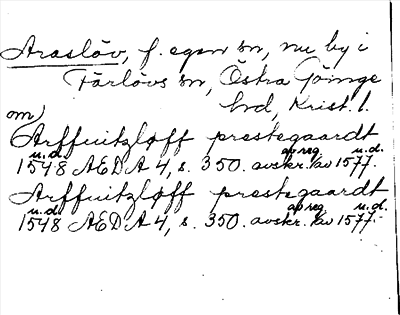 Araslöv, f. egen sn, nu by i
Färlövs sn, Östra Göinge
hd, Krist. l.
om)
Arffuitzløff prestegaardt
u.d. ap reg. u.d.
1548 AEDA 4, s. 350. avskr. av 1577.
Arffuitzløff prestegaardt
u.d. ap reg. u.d.
1548 AEDA 4, s. 350. avskr. av 1577.